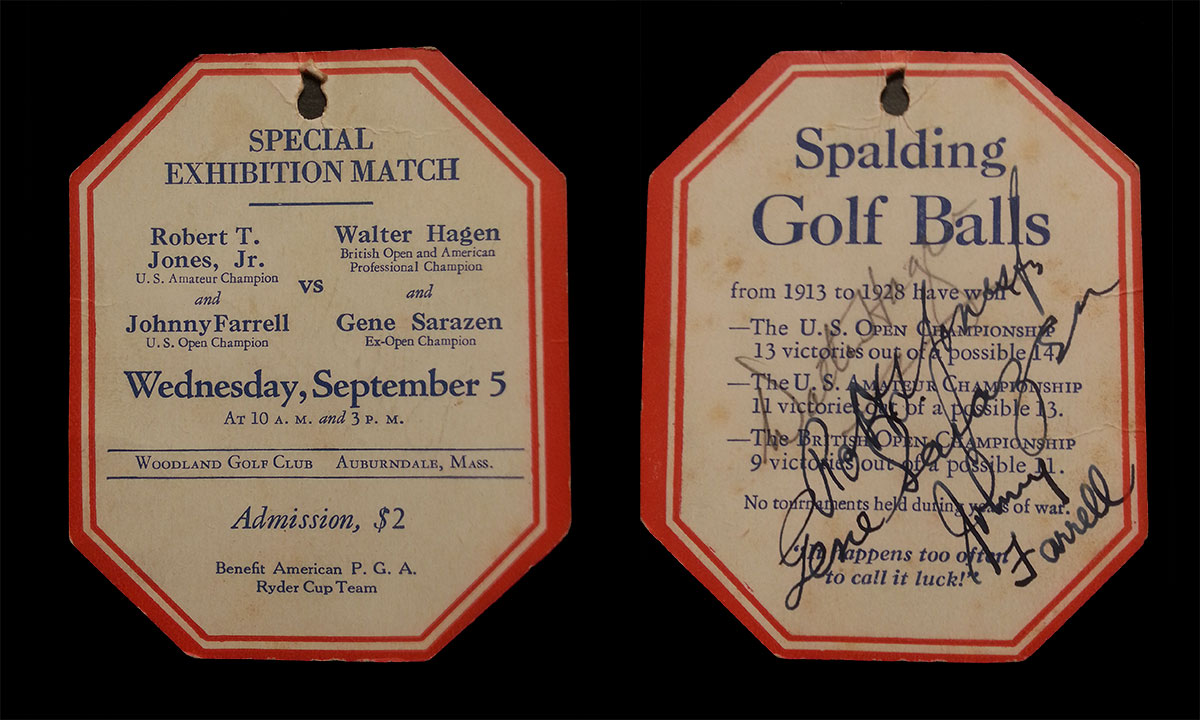 SPECIAL
EXHIBITION MATCH
Robert T.
Jones, Jr.
U. S. Amateur Champion
and
Johnny Farrell
U. S. Open Champion
vs
Walter Hagen
British Open and American
Professional Champion
and
Gene Sarazen
Ex-Open Champion
Wednesday, September 5
AT 10 A. M. and 3 P. M.
WOODLAND GOLF CLUB AUBURNDALE, MASS.
Admission, $2
Benefit American P. G. A.
Ryder Cup Team
Spalding
Golf Balls
from 1913 to 1928 have won
—The U. S. OPEN CHAMPIONSHIP
13 victories out of a possible 14.
—The U. S. AMATEUR CHAMPIONSHIP
11 victories out of a possible 13.
—The BRITISH OPEN CHAMPIONSHIP
9 victories out of a possible 11.
No tournaments held during years of war.
"It happens too often
to call it luck!"
Walter Hagen
Robt. T. Jones Jr.
Gene Sarazen
Johnny
Farrell